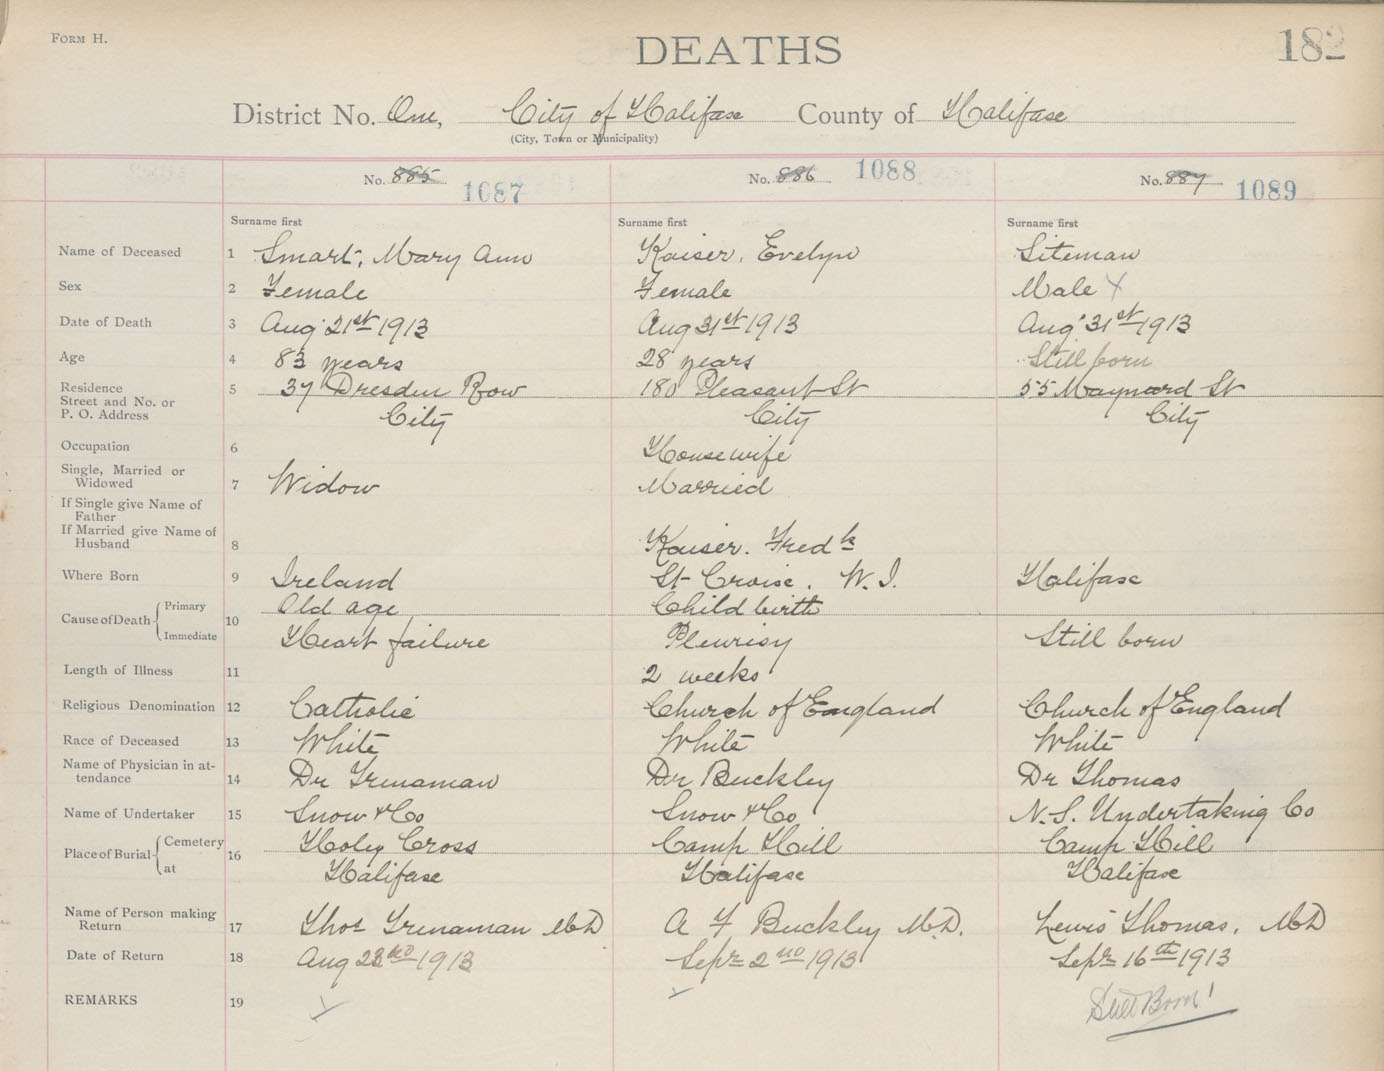 FORM H.
DEATHS
182
District No. One, City of Halifax County of Halifax
(City, Town or Municipality)
No. 885 1087 No. 886 1088 No. 887 1089
Surname first Surname first Surname first
Name of Deceased 1 Smart, Mary Ann Kaiser, Evelyn Siteman
Sex 2 Female Female Male X
Date of Death 3 Aug 21st 1913 Aug 31st 1913 Aug 31st 1913
Age 4 83 years 28 years Still born
Residence 5 37 Dresden Row 180 Pleasant St 55 Maynard St
Street and No. or
P. O. Address City City City
Occupation 6 Housewife
Single, Married or
Widowed 7 Widow Married
If Single give Name of
Father
If Married give Name of
Husband 8 Kaiser. Fredk
Where Born 9 Ireland St Croix. W. I. Halifax
Cause of Death Primary 10 Old age Child birth
Immediate Heart failure Pleurisy Still born
Length of Illness 11 2 weeks
Religious Denomination 12 Catholic Church of England Church of England
Race of Deceased 13 White White White
Name of Physician in at-
tendance 14 Dr Trenaman Dr Buckley Dr Thomas
Name of Undertaker 15 Snow & Co Snow & Co N. S. Undertaking Co
Place of Burial Cemetery 16 Holy Cross Camp Hill Camp Hill
at Halifax Halifax Halifax
Name of Person making
Return 17 Thos Trenaman MD A F Buckley M.D. Lewis Thomas, MD
Date of Return 18 Aug 23rd 1913 Sepr 2nd 1913 Sepr 16th 1913
REMARKS 19 Still Born